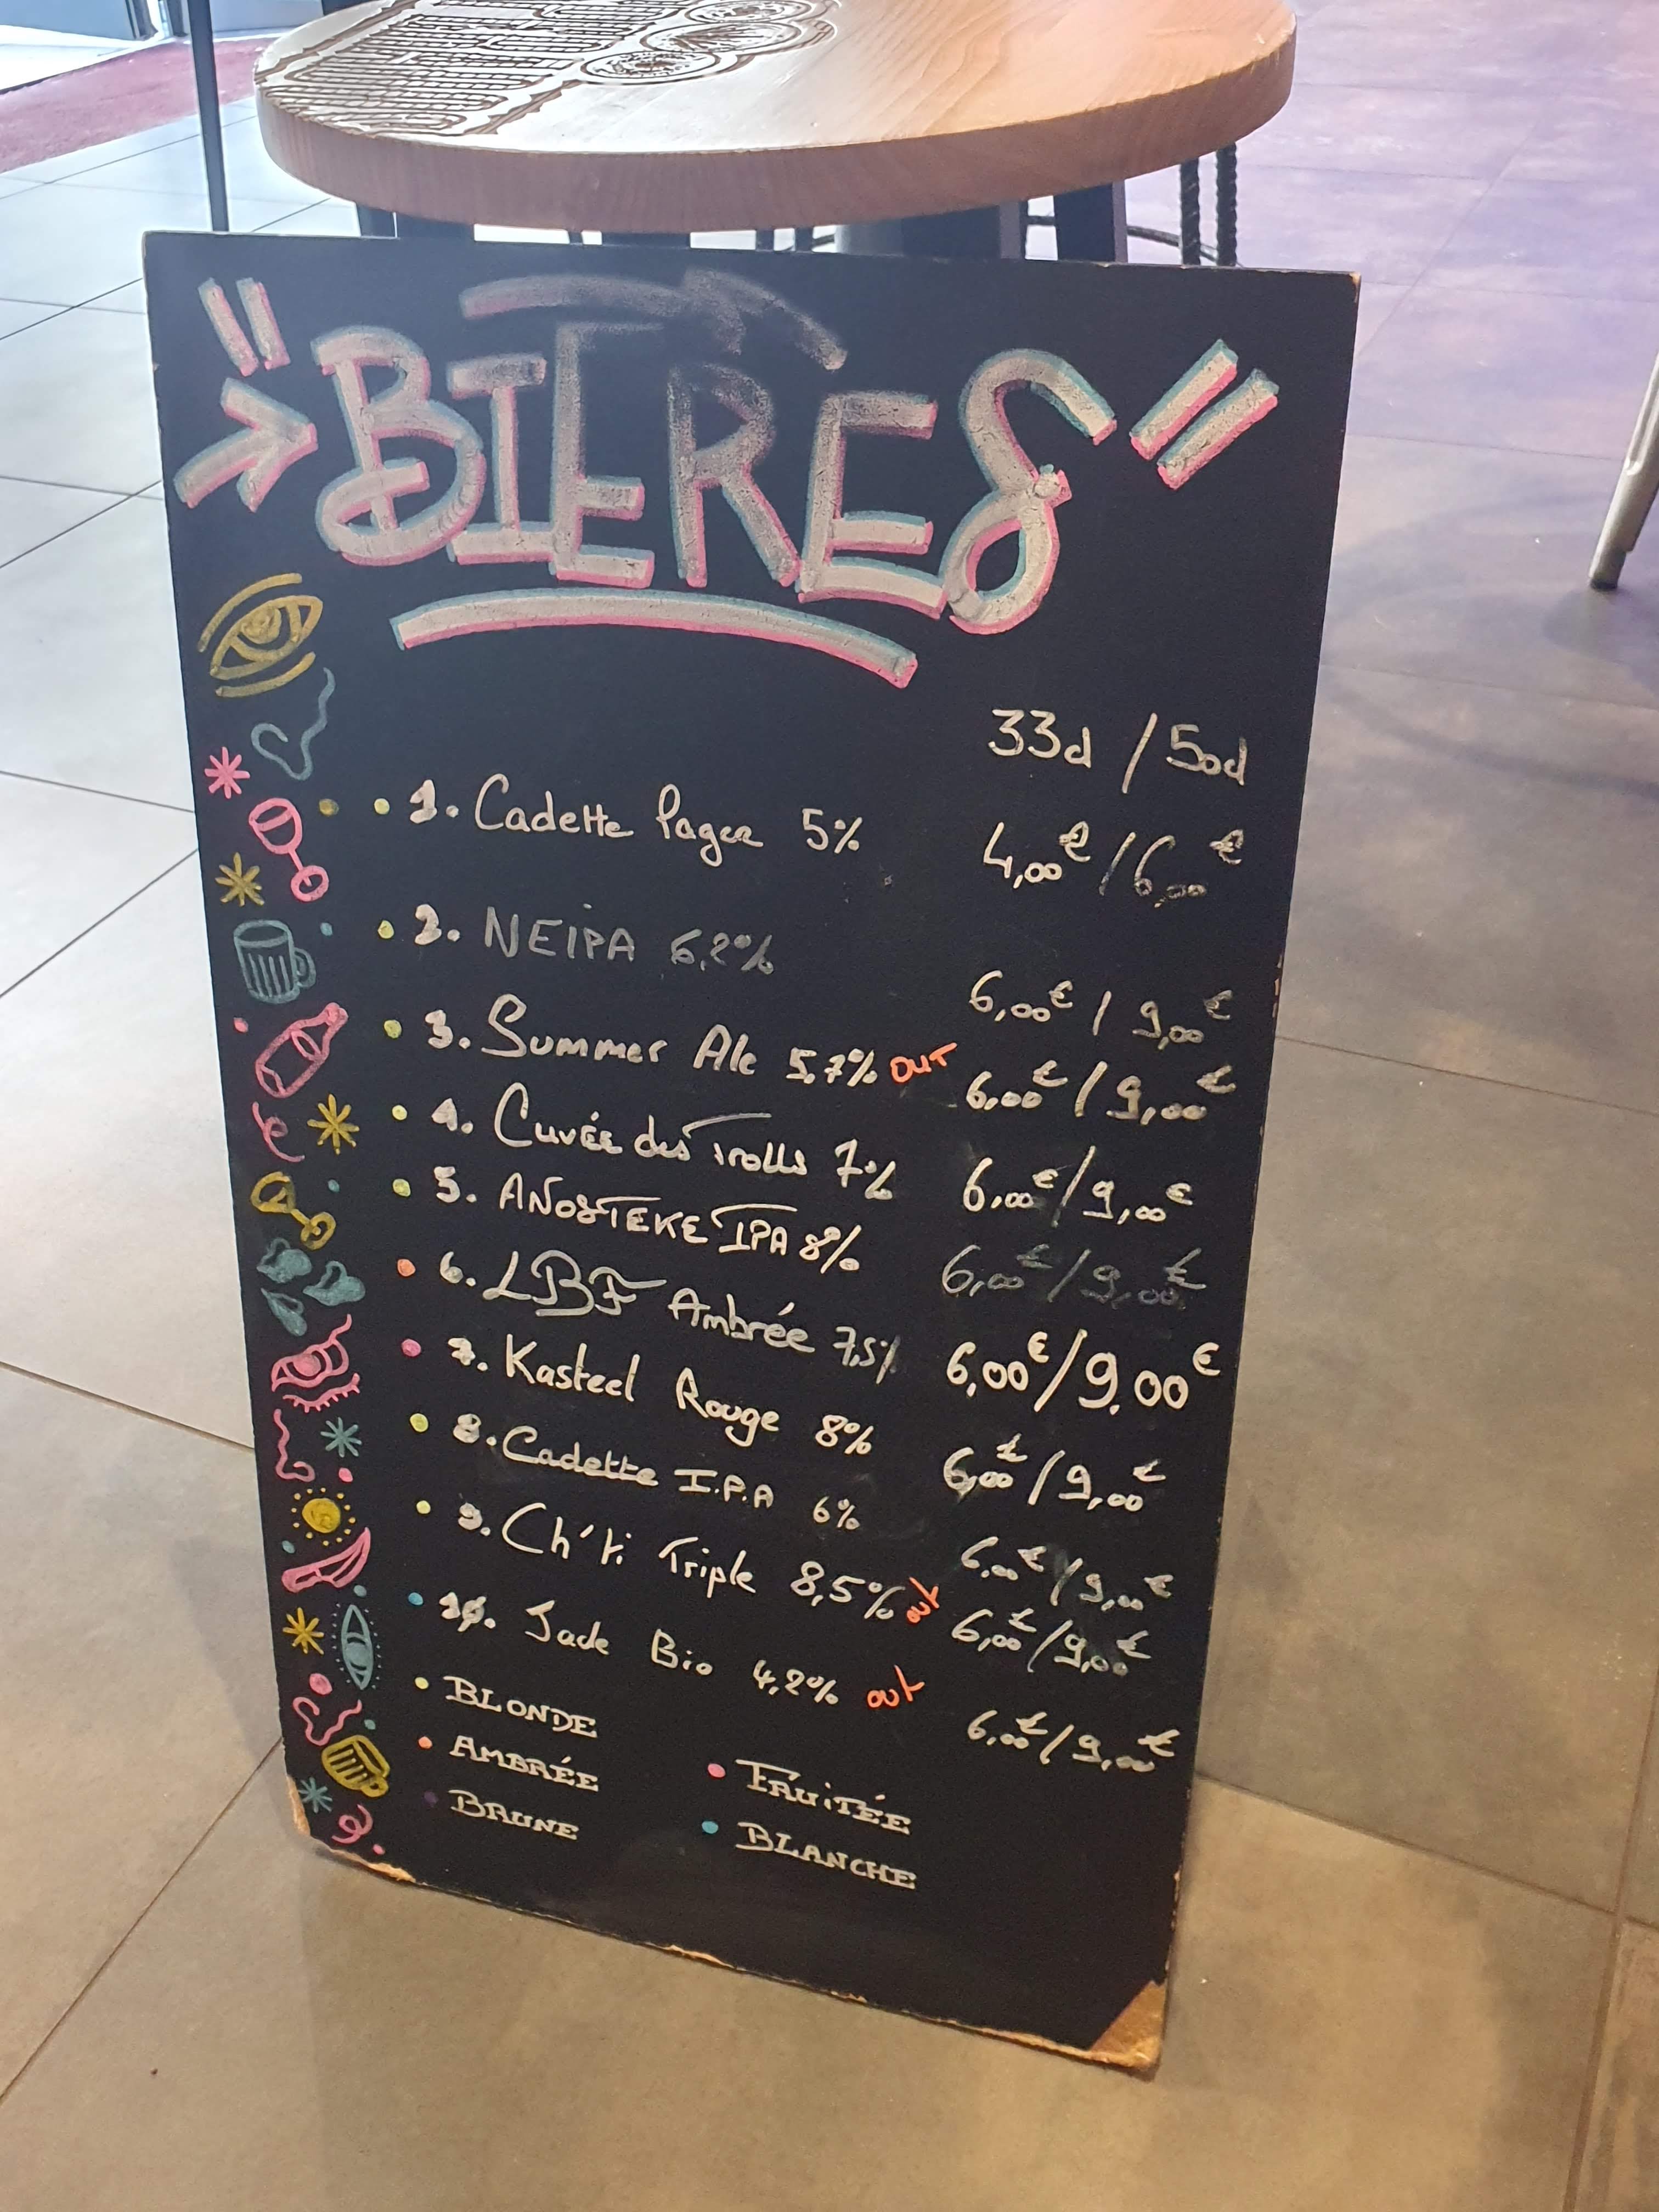 "BIERES"
33cl / 50cl
1. Cadette Lager 5% 4,00€ / 6,00€
2. NEIPA 6,2% 6,00€ / 9,00€
3. Summer Ale 5,7% OUT 6,00€ / 9,00€
4. Cuvée des Trolls 7% 6,00€ / 9,00€
5. ANOSTEKE IPA 8% 6,00€ / 9,00€
6. LBF Ambrée 7,5% 6,00€ / 9,00€
7. Kasteel Rouge 8% 6,00€ / 9,00€
8. Cadette I.P.A 6% 6,00€ / 9,00€
9. Ch'ti Triple 8,5% out 6,00€ / 9,00€
10. Jade Bio 4,2% out 6,00€ / 9,00€
BLONDE
AMBRÉE
BRUNE
FRUITÉE
BLANCHE